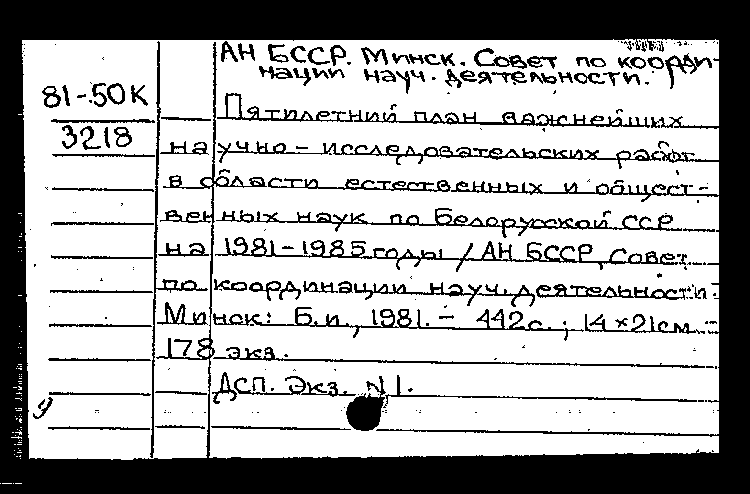 АН БССР. Минск. Совет по коорди-
нации науч. деятельности.
81-50К
3218
Пятилетний план важнейших
научно-исследовательских работ
в области естественных и общест-
венных наук по Белорусской ССР
на 1981-1985 годы / АН БССР, Совет
по координации науч. деятельности.
Минск: Б.и., 1981. - 442с.; 14×21см. -
178 экз.
ДСП. Экз. N1.